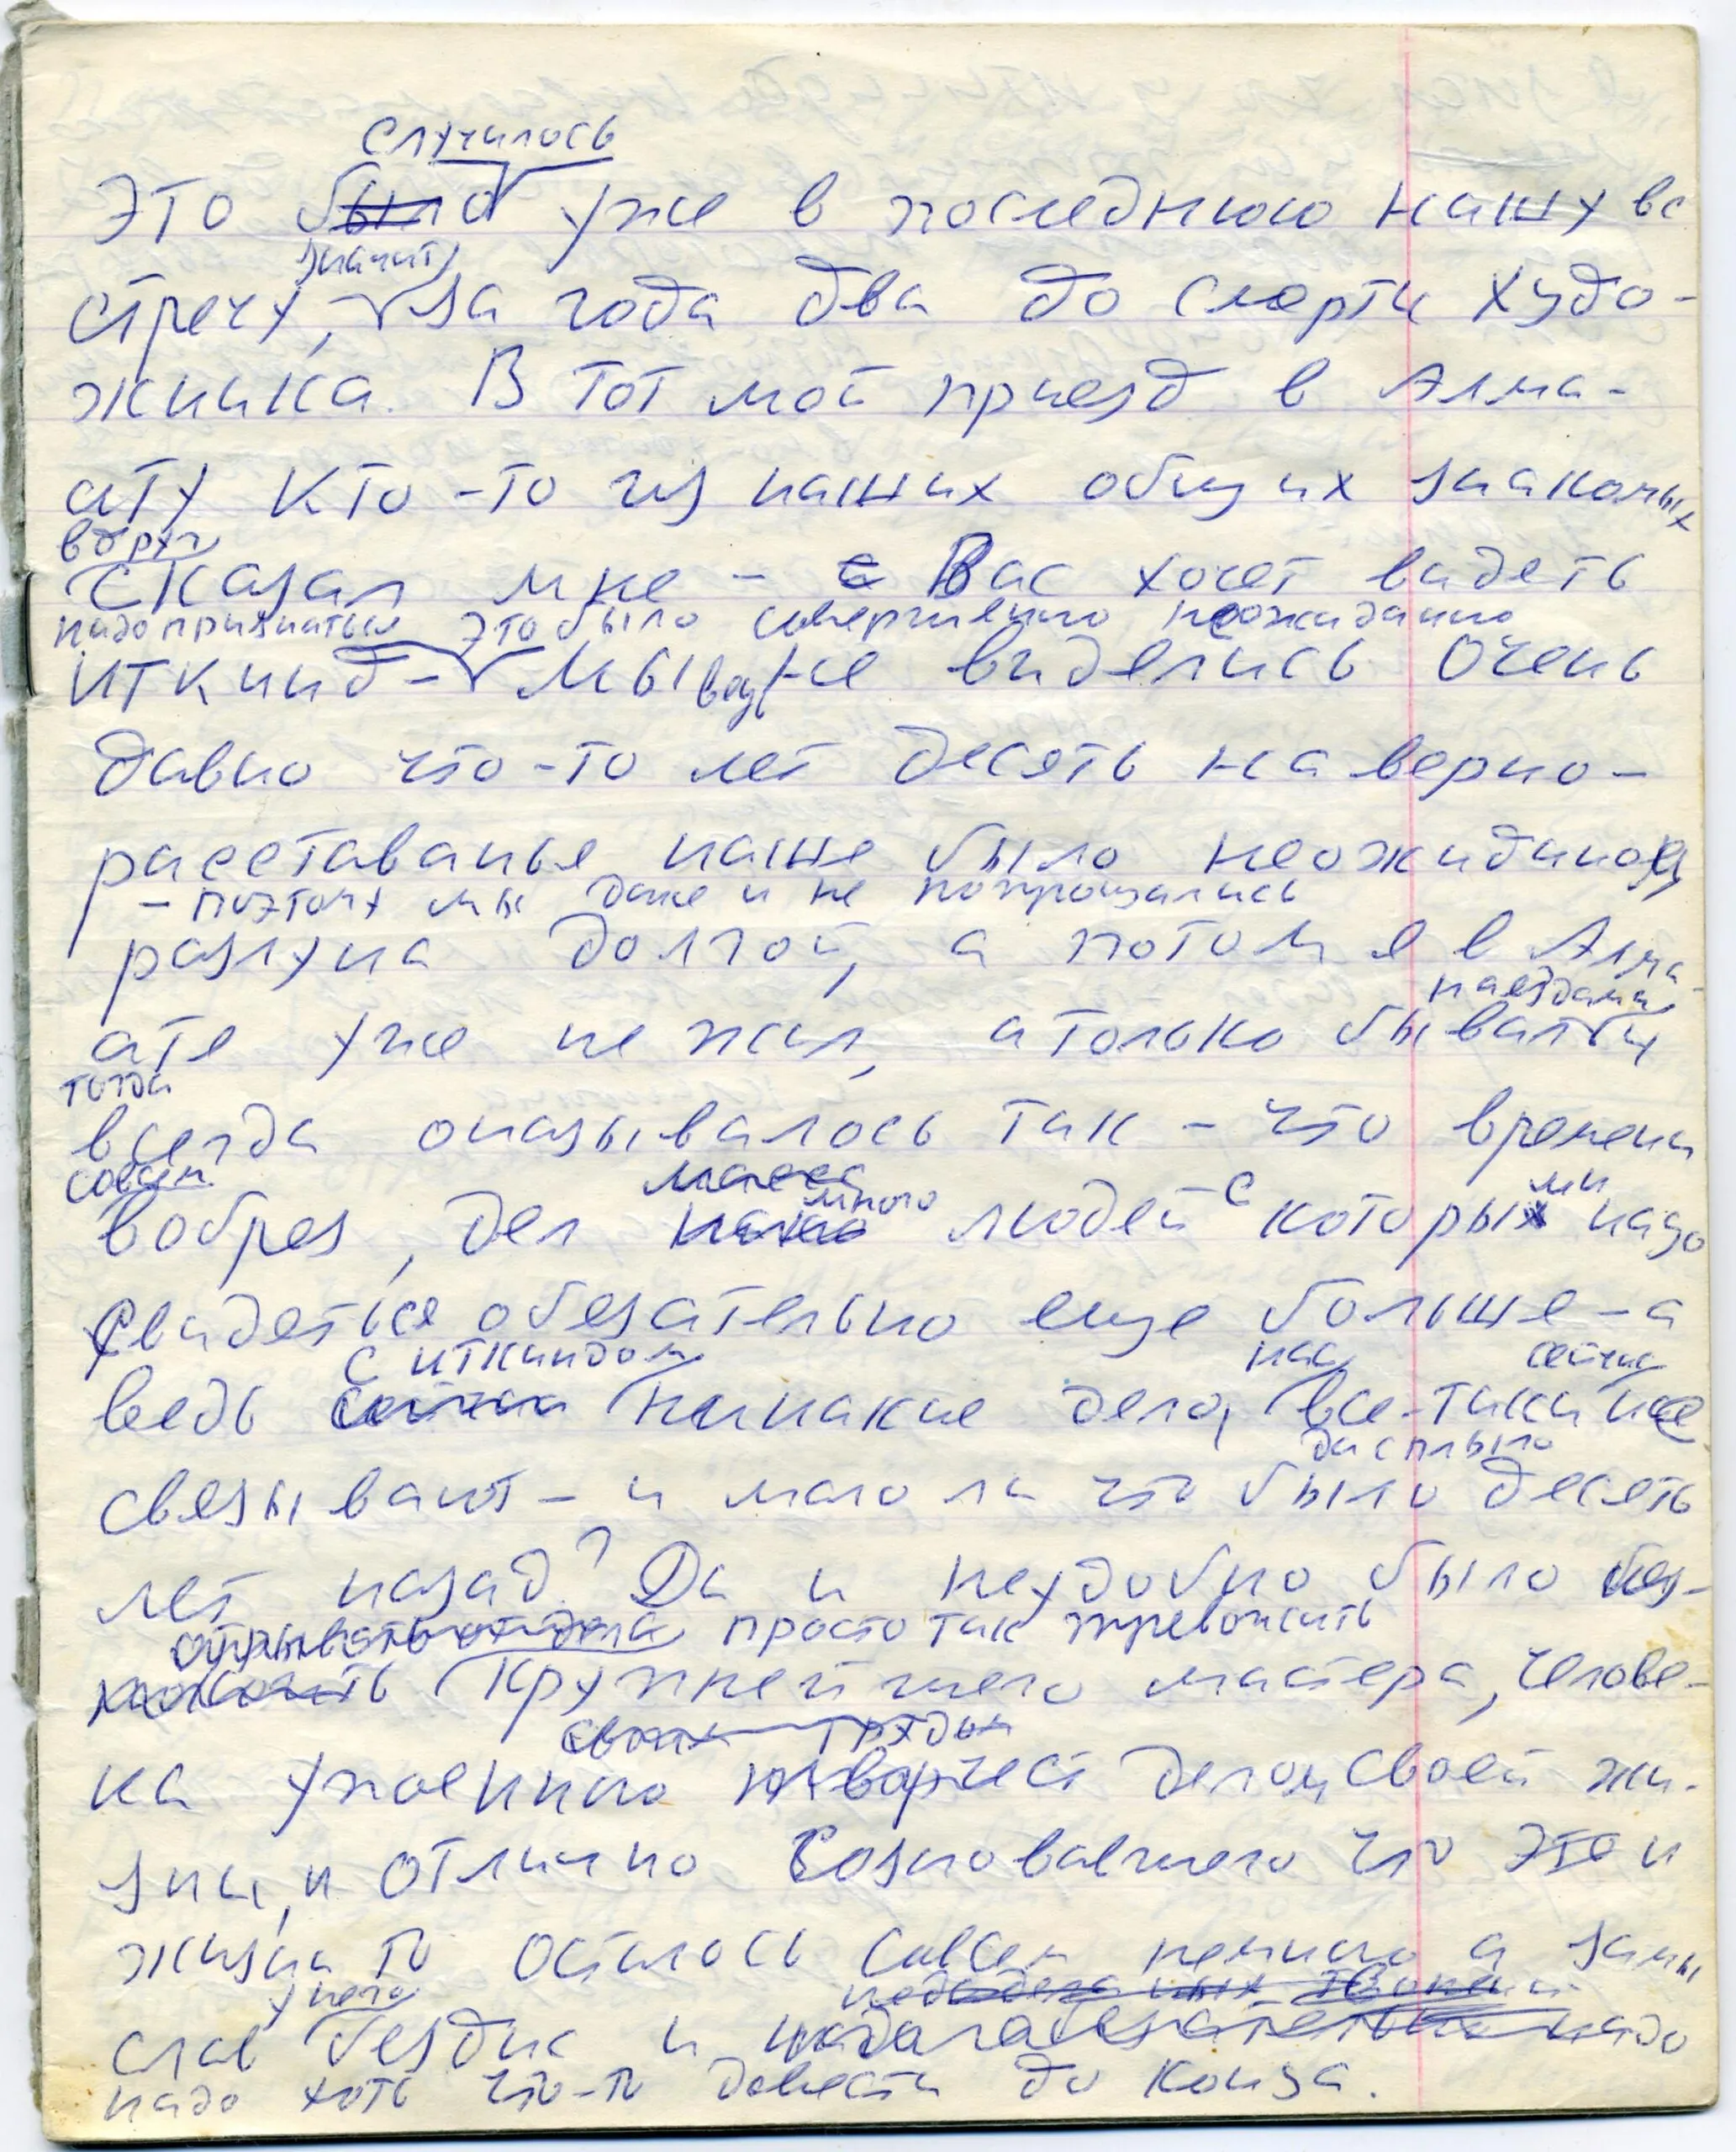 случилось
Это было уже в последнюю нашу вс
значит
стречу, за года два до смерти худо-
жника. В тот мой приезд в Алма-
ату кто-то из наших общих знакомых
вдруг
сказал мне - Вас хочет видеть
надо признаться это было совершенно неожиданно
Иткинд - Мы ведь не виделись очень
давно что-то лет десять наверно -
расставанье наше было неожиданно
- поэтому мы даже и не попрощались
разлука долгой, а потом я в Алма-
наездами
ате уже не жил, а только бывал
тогда
всегда оказывалось так - что времени
совсем
вобрез, дел
масса
много людей с которыми надо
свидеться обезательно еще больше - а
с Иткиндом нас сейчас
ведь сейчас никакие дела, все-таки не
да сплыло
связывают - и мало ли что было десять
лет назад? Да и неудобно было без-
отрывать от дела просто так тревожить
крупнейшего мастера, челове-
своих трудах
ка упоенного творчест делом своей жи-
зни, и отлично сознававшего что этой
жизни то осталось совсем немного а замы
у него
слов бездна и надо
надо хоть что-то довести до конца.